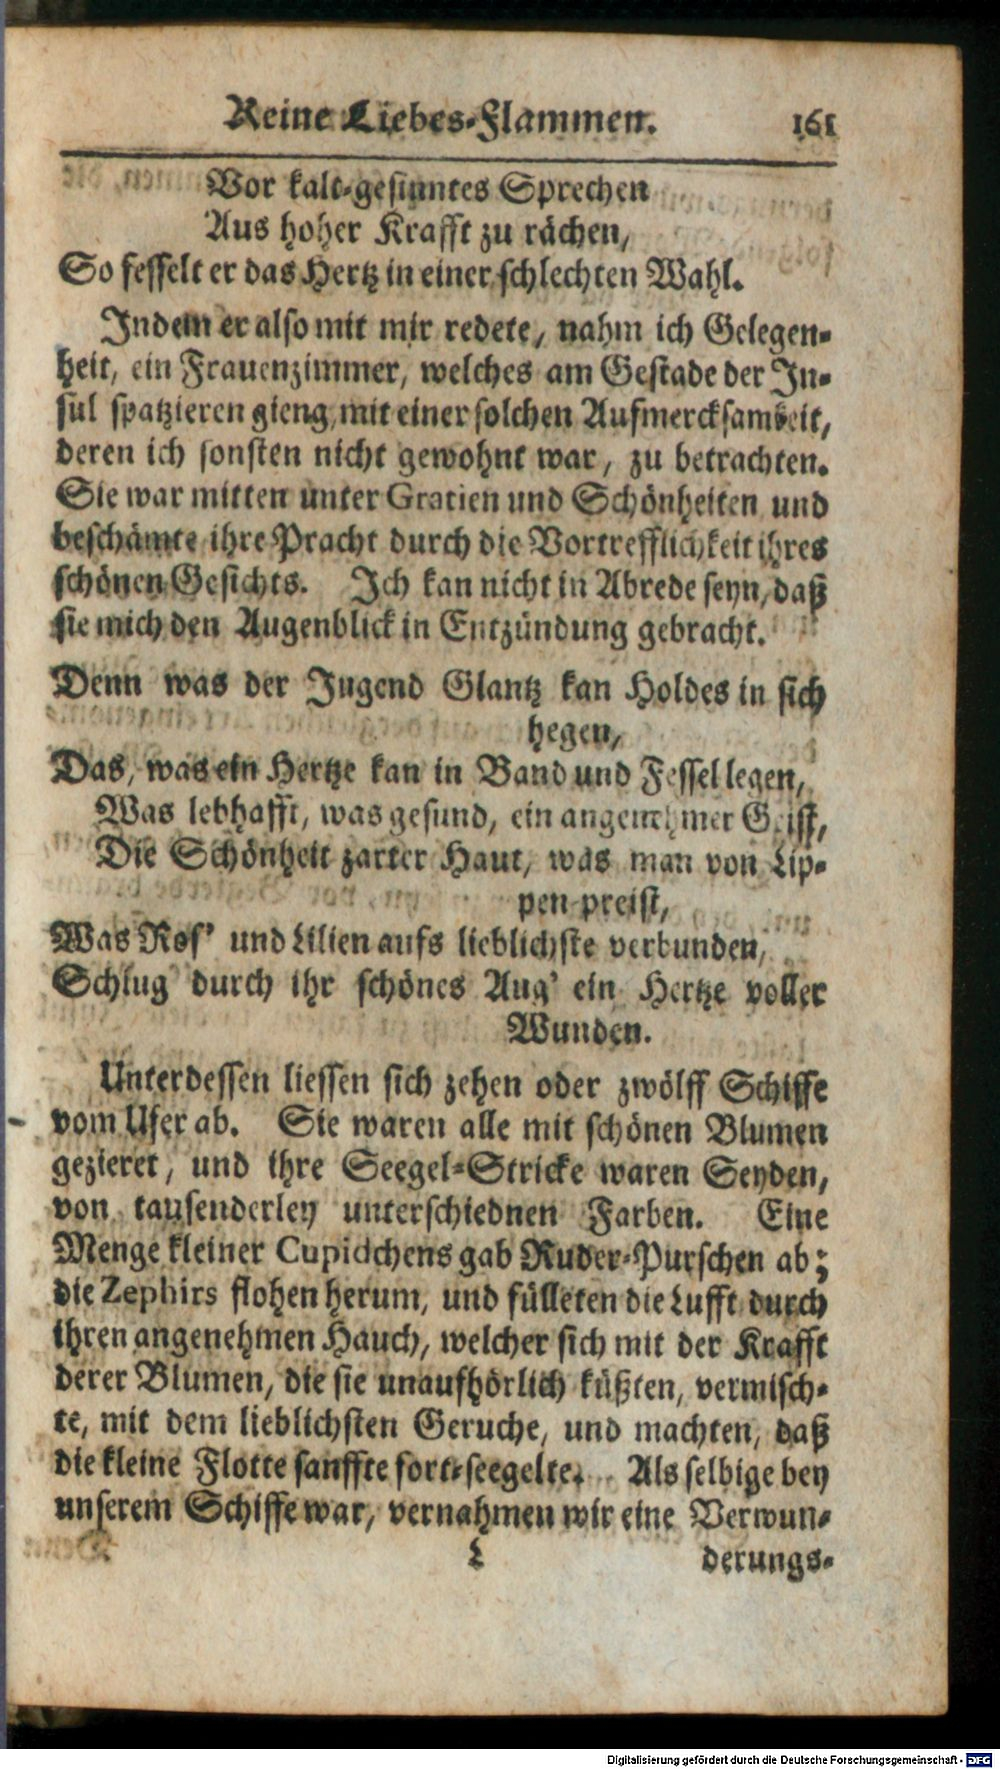 Reine Liebes-Flammen. 161
Vor kalt-gesinntes Sprechen
Aus hoher Krafft zu rächen,
So fesselt er das Hertz in einer schlechten Wahl.
Indem er also mit mir redete, nahm ich Gelegen-
heit, ein Frauenzimmer, welches am Gestade der In-
sul spatzieren gieng, mit einer solchen Aufmercksamkeit,
deren ich sonsten nicht gewohnt war, zu betrachten.
Sie war mitten unter Gratien und Schönheiten und
beschämte ihre Pracht durch die Vortrefflichkeit ihres
schönen Gesichts. Ich kan nicht in Abrede seyn, daß
sie mich den Augenblick in Entzündung gebracht.
Denn was der Jugend Glantz kan Holdes in sich
hegen,
Das, was ein Hertze kan in Band und Fessel legen,
Was lebhafft, was gesund, ein angenehmer Geist,
Die Schönheit zarter Haut, was man von Lip-
pen preist,
Was Ros' und Lilien aufs lieblichste verbunden,
Schlug durch ihr schönes Aug' ein Hertze voller
Wunden.
Unterdessen liessen sich zehen oder zwölff Schiffe
vom Ufer ab. Sie waren alle mit schönen Blumen
gezieret, und ihre Seegel-Stricke waren Seyden,
von tausenderley unterschiednen Farben. Eine
Menge kleiner Cupidchens gab Ruder-Purschen ab;
die Zephirs flohen herum, und fülleten die Lufft durch
ihren angenehmen Hauch, welcher sich mit der Krafft
derer Blumen, die sie unaufhörlich küßten, vermisch-
te, mit dem lieblichsten Geruche, und machten, daß
die kleine Flotte sanffte fort-seegelte. Als selbige bey
unserem Schiffe war, vernahmen wir eine Verwun-
L derungs-
Digitalisierung gefördert durch die Deutsche Forschungsgemeinschaft - DFG